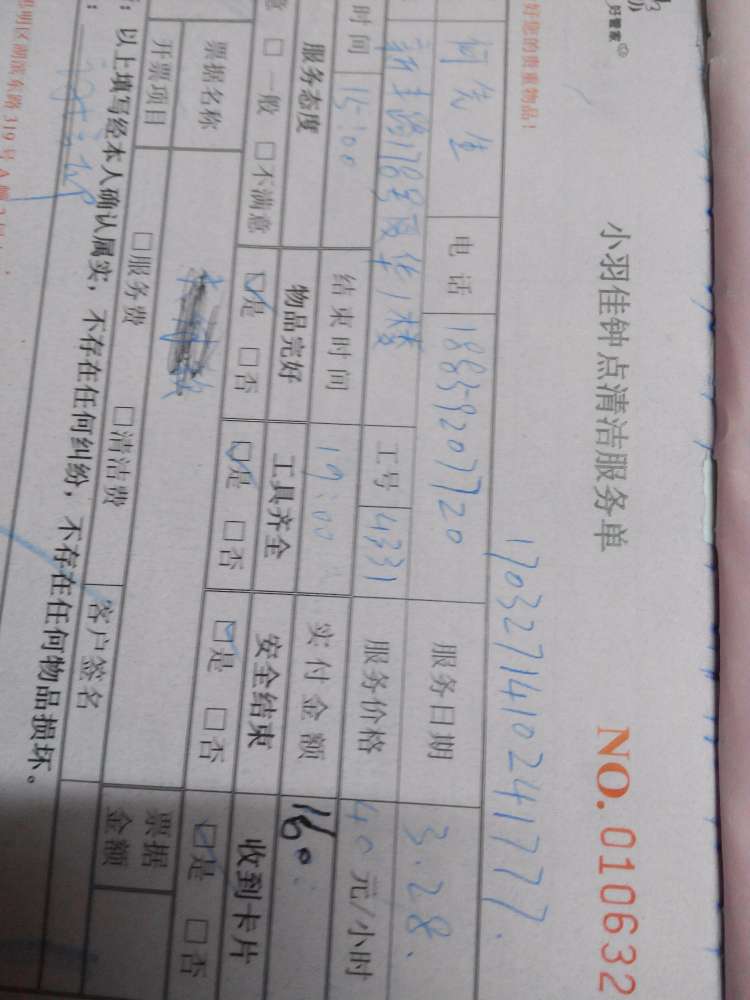 好管家
小羽佳钟点清洁服务单 NO.010632
好您的贵重物品！
17032714102417 77.
何先生 电话 18859207720 服务日期 3.28.
178号 华1楼 工号 4331 服务价格 40元/小时
时间 15:00 结束时间 19:00 实付金额 160.
服务态度 物品完好 工具齐全 安全结束 收到卡片
意 □一般 □不满意 ☑是 □否 ☑是 □否 ☑是 □否 ☑是 □否
票据名称 票据金额
开票项目 □服务费 □清洁费
：以上填写经本人确认属实，不存在任何纠纷，不存在任何物品损坏。
客户签名
明区湖滨东路319号A